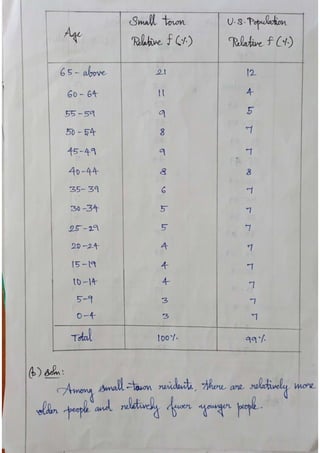 Age | Small town Relative f (%) | U.S. Population Relative f (%)
65 - above | 21 | 12
60 - 64 | 11 | 4
55 - 59 | 9 | 5
50 - 54 | 8 | 7
45 - 49 | 9 | 7
40 - 44 | 8 | 8
35 - 39 | 6 | 7
30 - 34 | 5 | 7
25 - 29 | 5 | 7
20 - 24 | 4 | 7
15 - 19 | 4 | 7
10 - 14 | 4 | 7
5 - 9 | 3 | 7
0 - 4 | 3 | 7
Total | 100% | 99%
(b) Soln:
Among small-town residents, there are relatively more
older people and relatively fewer younger people.